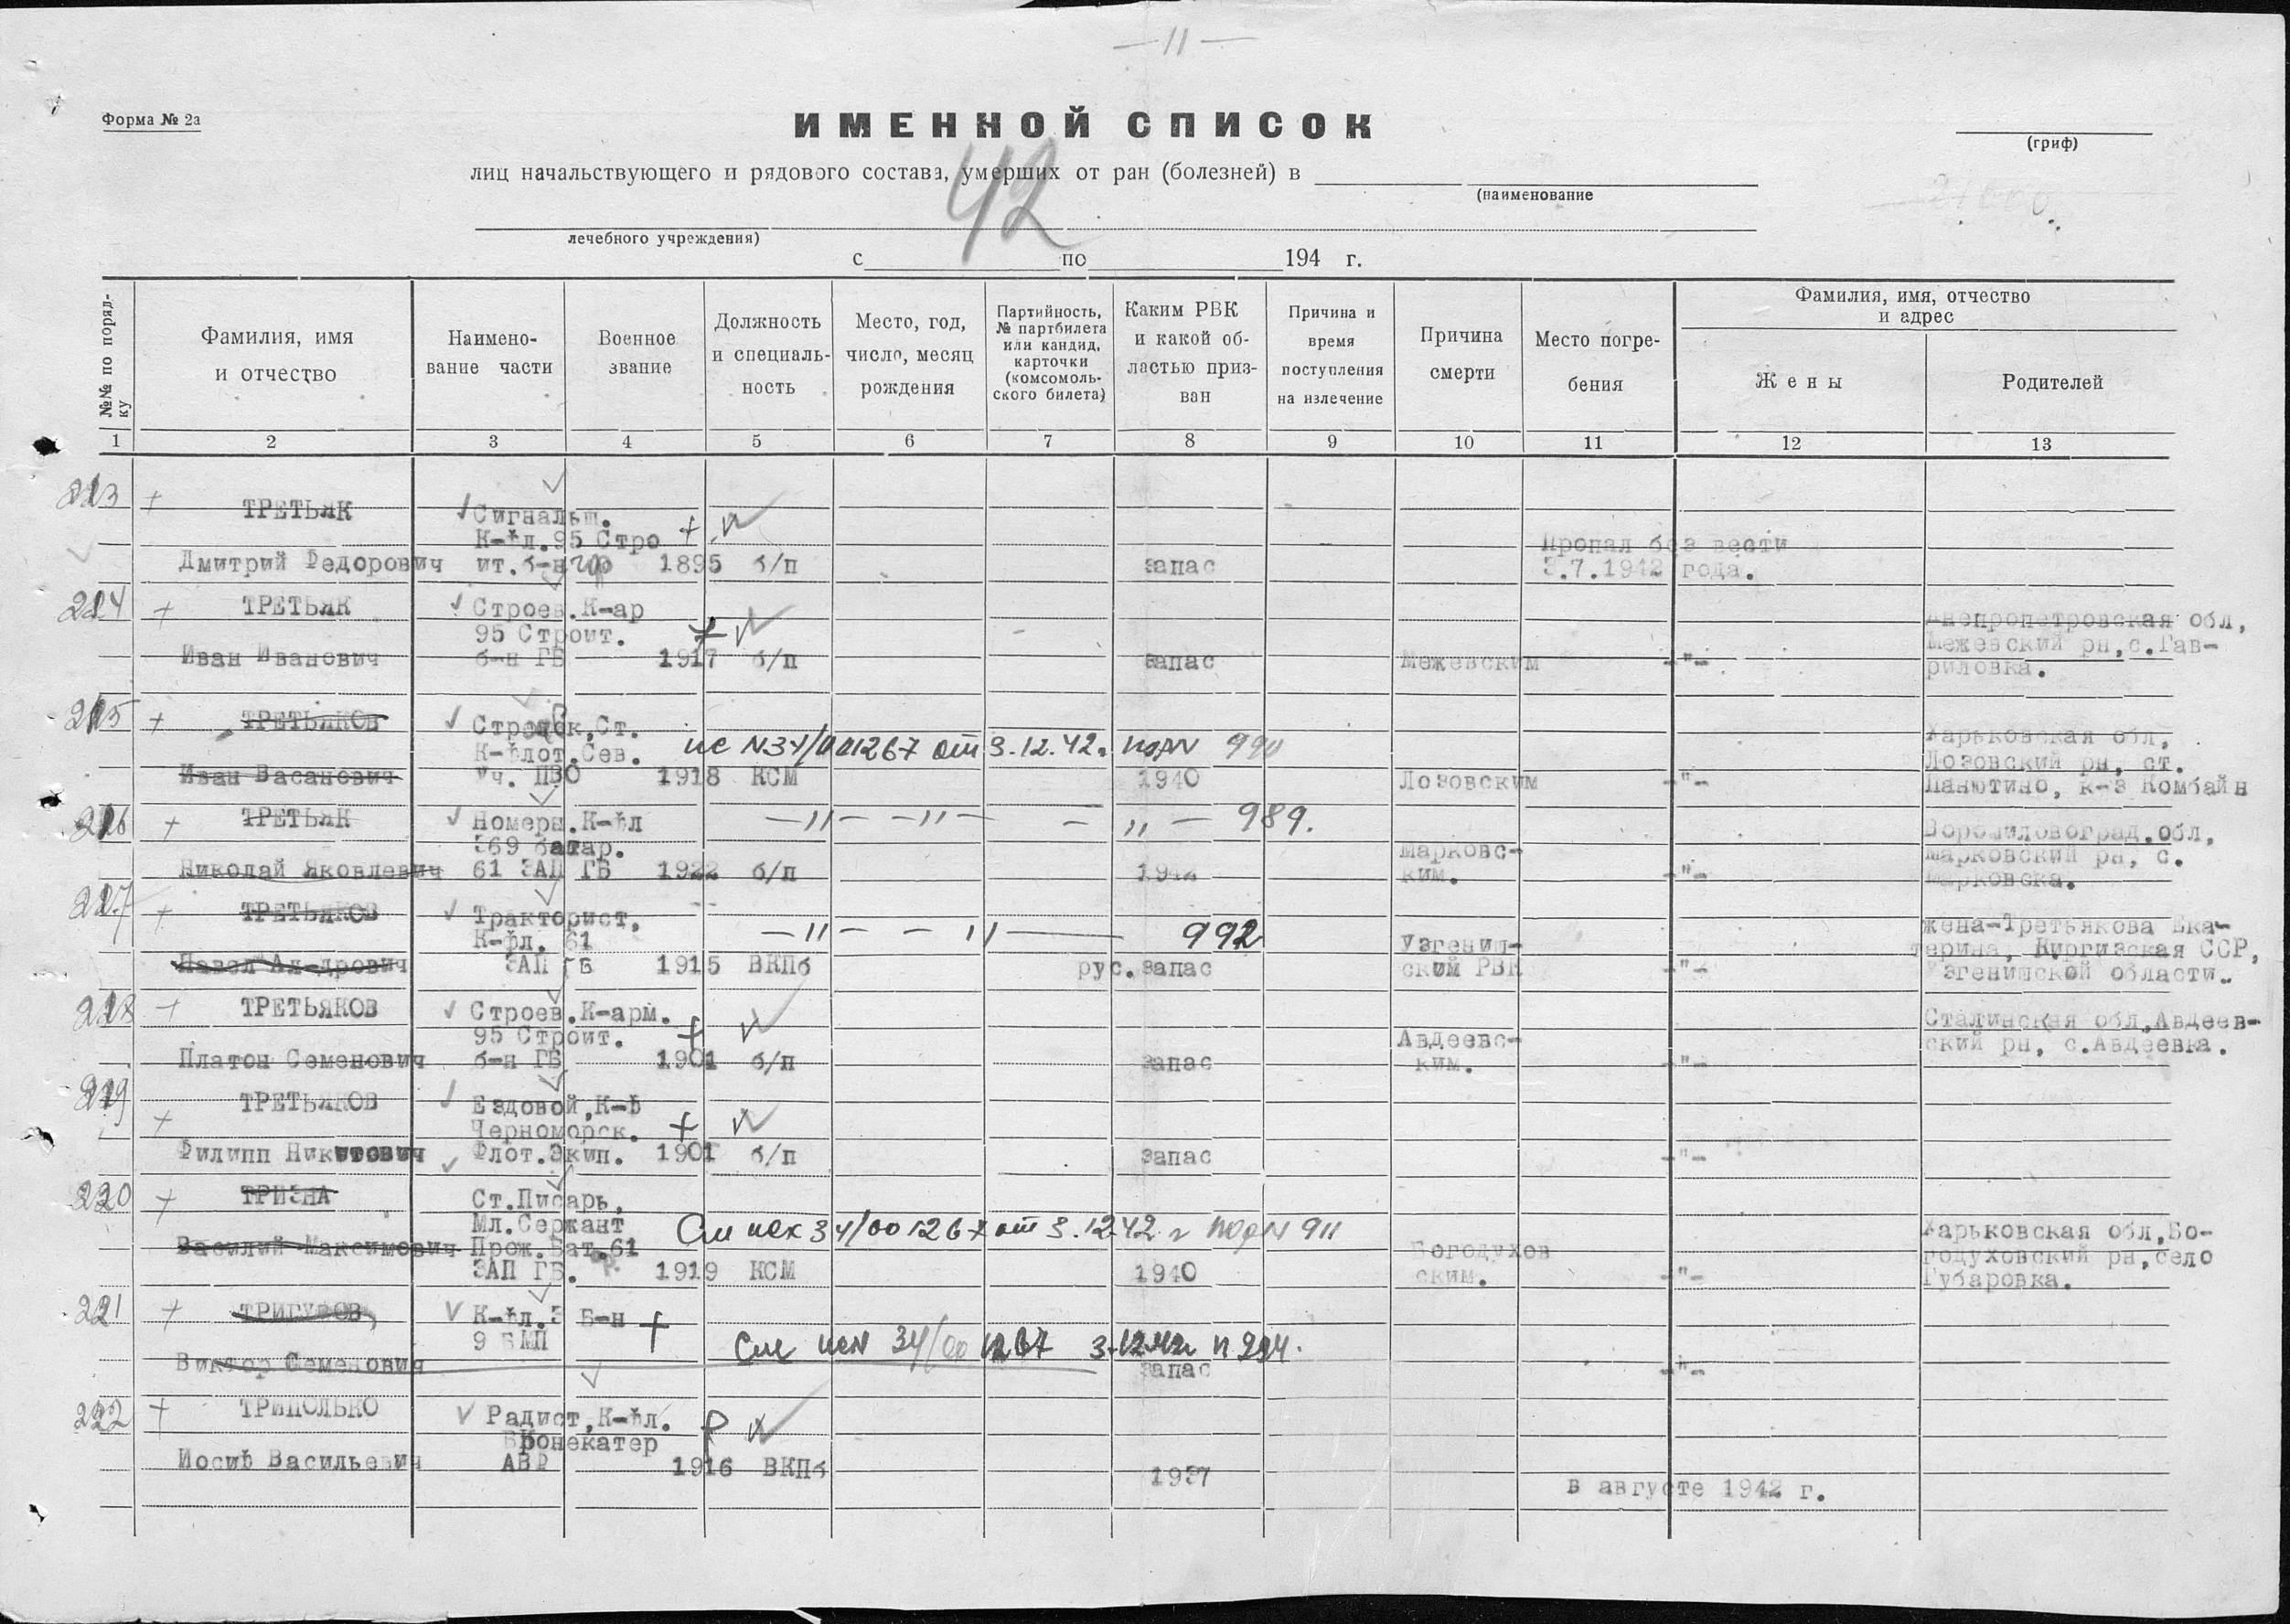 — 11 —
Форма № 2а
ИМЕННОЙ СПИСОК
(гриф)
лиц начальствующего и рядового состава, умерших от ран (болезней) в
(наименование
42
лечебного учреждения)
с по 194 г.
№№ по порядку
Фамилия, имя и отчество
Наименование части
Военное звание
Должность и специальность
Место, год, число, месяц рождения
Партийность, № партбилета или кандид. карточки (комсомольского билета)
Каким РВК и какой областью призван
Причина и время поступления на излечение
Причина смерти
Место погребения
Фамилия, имя, отчество и адрес
Жены
Родителей
1 2 3 4 5 6 7 8 9 10 11 12 13
213 + ТРЕТЬЯК Сигнальщ.
К-фл.95 Стро +
Пропал без вести
Дмитрий Федорович ит.б-н 1895 б/п запас 3.7.1942 года.
214 + ТРЕТЬЯК Строев.К-ар
95 Строит. + Днепропетровская обл,
Иван Иванович б-н ГБ 1917 б/п запас Межевским -"- Межевский рн,с.Гав-
риловка.
215 + ТРЕТЬЯКОВ Ст.
К-флот.Сев. №34/001267 от 3.12.42г 990 Харьковская обл,
Лозовский рн, ст.
Иван Васанович Уч. ПВО 1918 КСМ 1940 Лозовским -"- Панютино, к-з Комбайн
216 + ТРЕТЬЯК Номерн.К-фл —11— —11— — 11 — 989.
569 батар. Марковс- Ворошиловоград.обл,
Марковский рн, с.
Николай Яковлевич 61 ЗАП ГБ 1922 б/п 1942 ким. -"- Марковска.
217 + ТРЕТЬЯКОВ Тракторист,
К-фл. 61 —11— — 11 — 992 Узгениш- жена-Третьякова Ека-
терина, Киргизская ССР,
Павел Ал-дрович ЗАП ГБ 1915 ВКПб рус.запас ским РВК -"- Узгенишской области.
218 + ТРЕТЬЯКОВ Строев.К-арм.
95 Строит. + Авдеевс- Сталинская обл,Авдеев-
Платон Семенович б-н ГБ 1901 б/п запас ким. -"- ский рн, с.Авдеевка.
219 + ТРЕТЬЯКОВ Ездовой,К-ф
Черноморск. +
Филипп Никитович Флот.Экип. 1901 б/п запас -"-
220 + ТРИЗНА Ст.Писарь,
Мл.Сержант См исх 34/001267 от 3.12.42 г 911
Василий Максимович Прож.Бат.61 Богодухов Харьковская обл,Бо-
годуховский рн,село
ЗАП ГБ. 1919 КСМ 1940 ским. -"- Губаровка.
221 + К-фл.3 Б-н +
9 БМП См 34/001267 3-12.42г
Виктор Семенович запас -"-
222 + ТРИПОЛЬКО Радист,К-фл.
Бронекатер
Иосиф Васильевич АВР 1916 ВКПб 1937
в августе 1942 г.